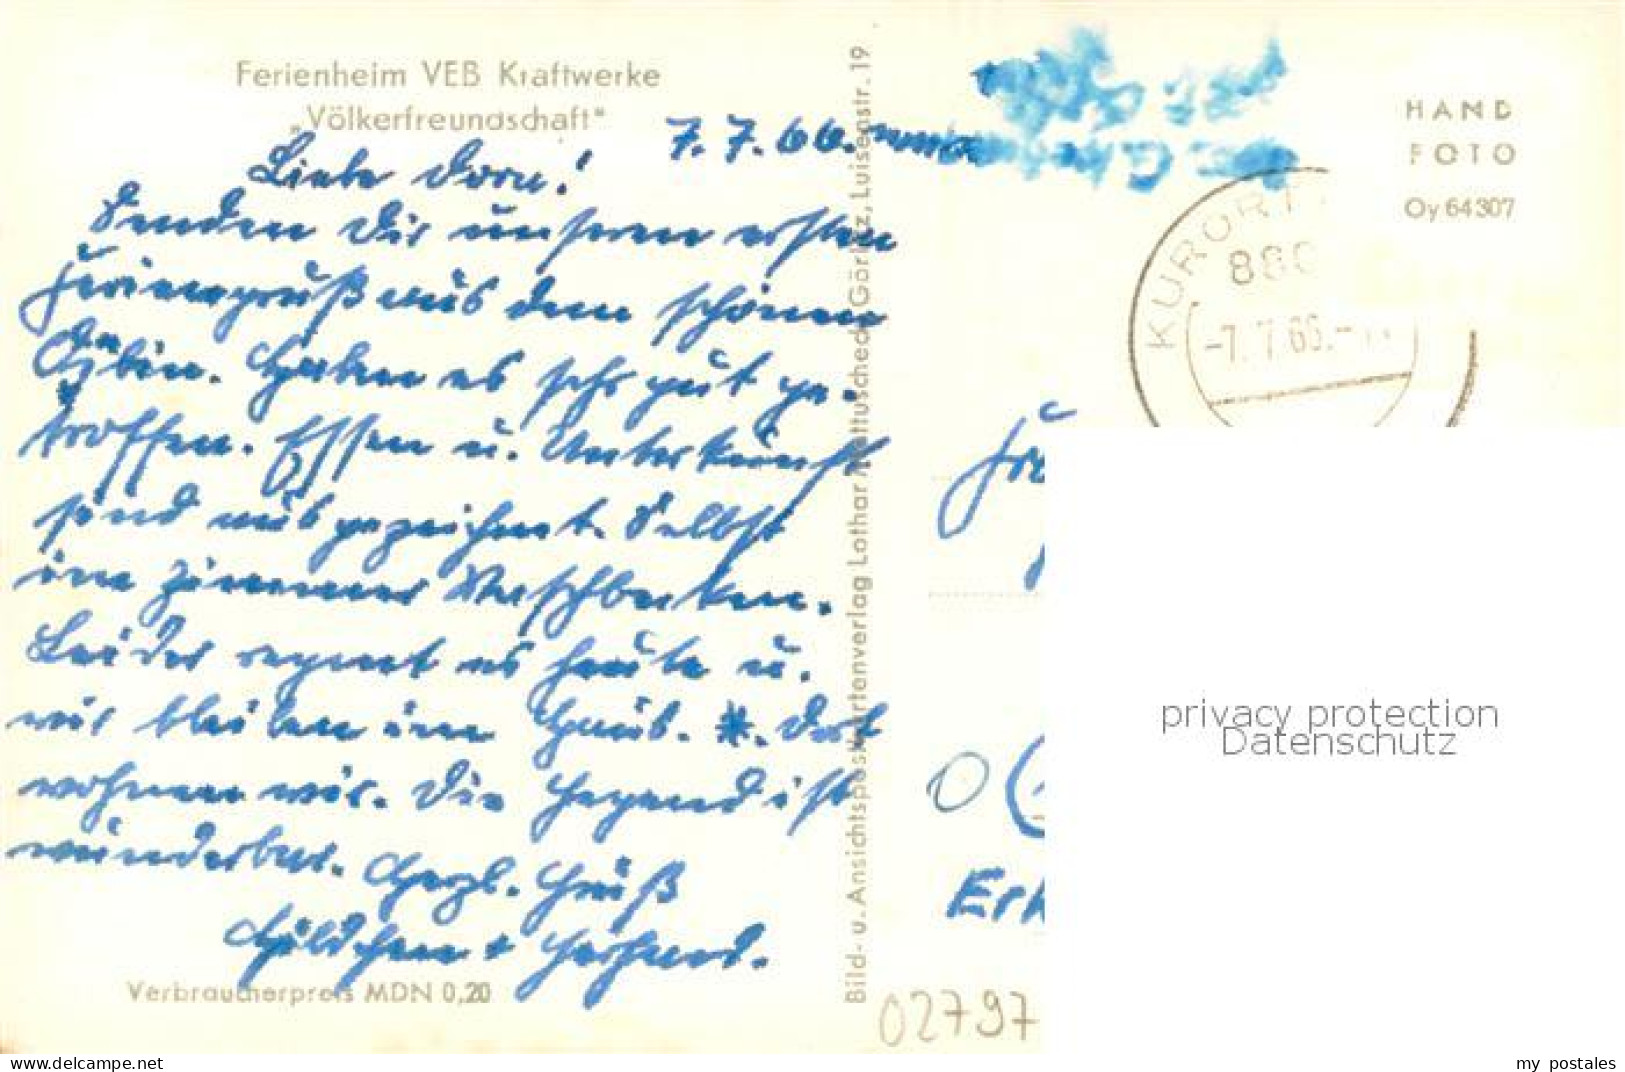 Ferienheim VEB Kraftwerke
„Völkerfreundschaft"
7.7.66.
Liebe Dora!
Senden Dir unseren ersten
Feriengruß aus dem schönen
Oybin. Haben es sehr gut ge-
troffen. Essen u. Unterkunft
sind ausgezeichnet. Selbst
im Zimmer Waschbecken.
Leider regnet es heute u.
wir bleiben im Haus. *. Dort
wohnen wir. Die Gegend ist
wunderbar. Herzl. Gruß
Hildchen + Gerhard.
Verbraucherpreis MDN 0,20
Bild- u. Ansichtspostkartenverlag Lothar Mattusched, Görlitz, Luisenstr. 19
HAND
FOTO
Oy 64307
KURORT
880
-7.7.66.-
02797
privacy protection
Datenschutz
delcampe.net
my_postales